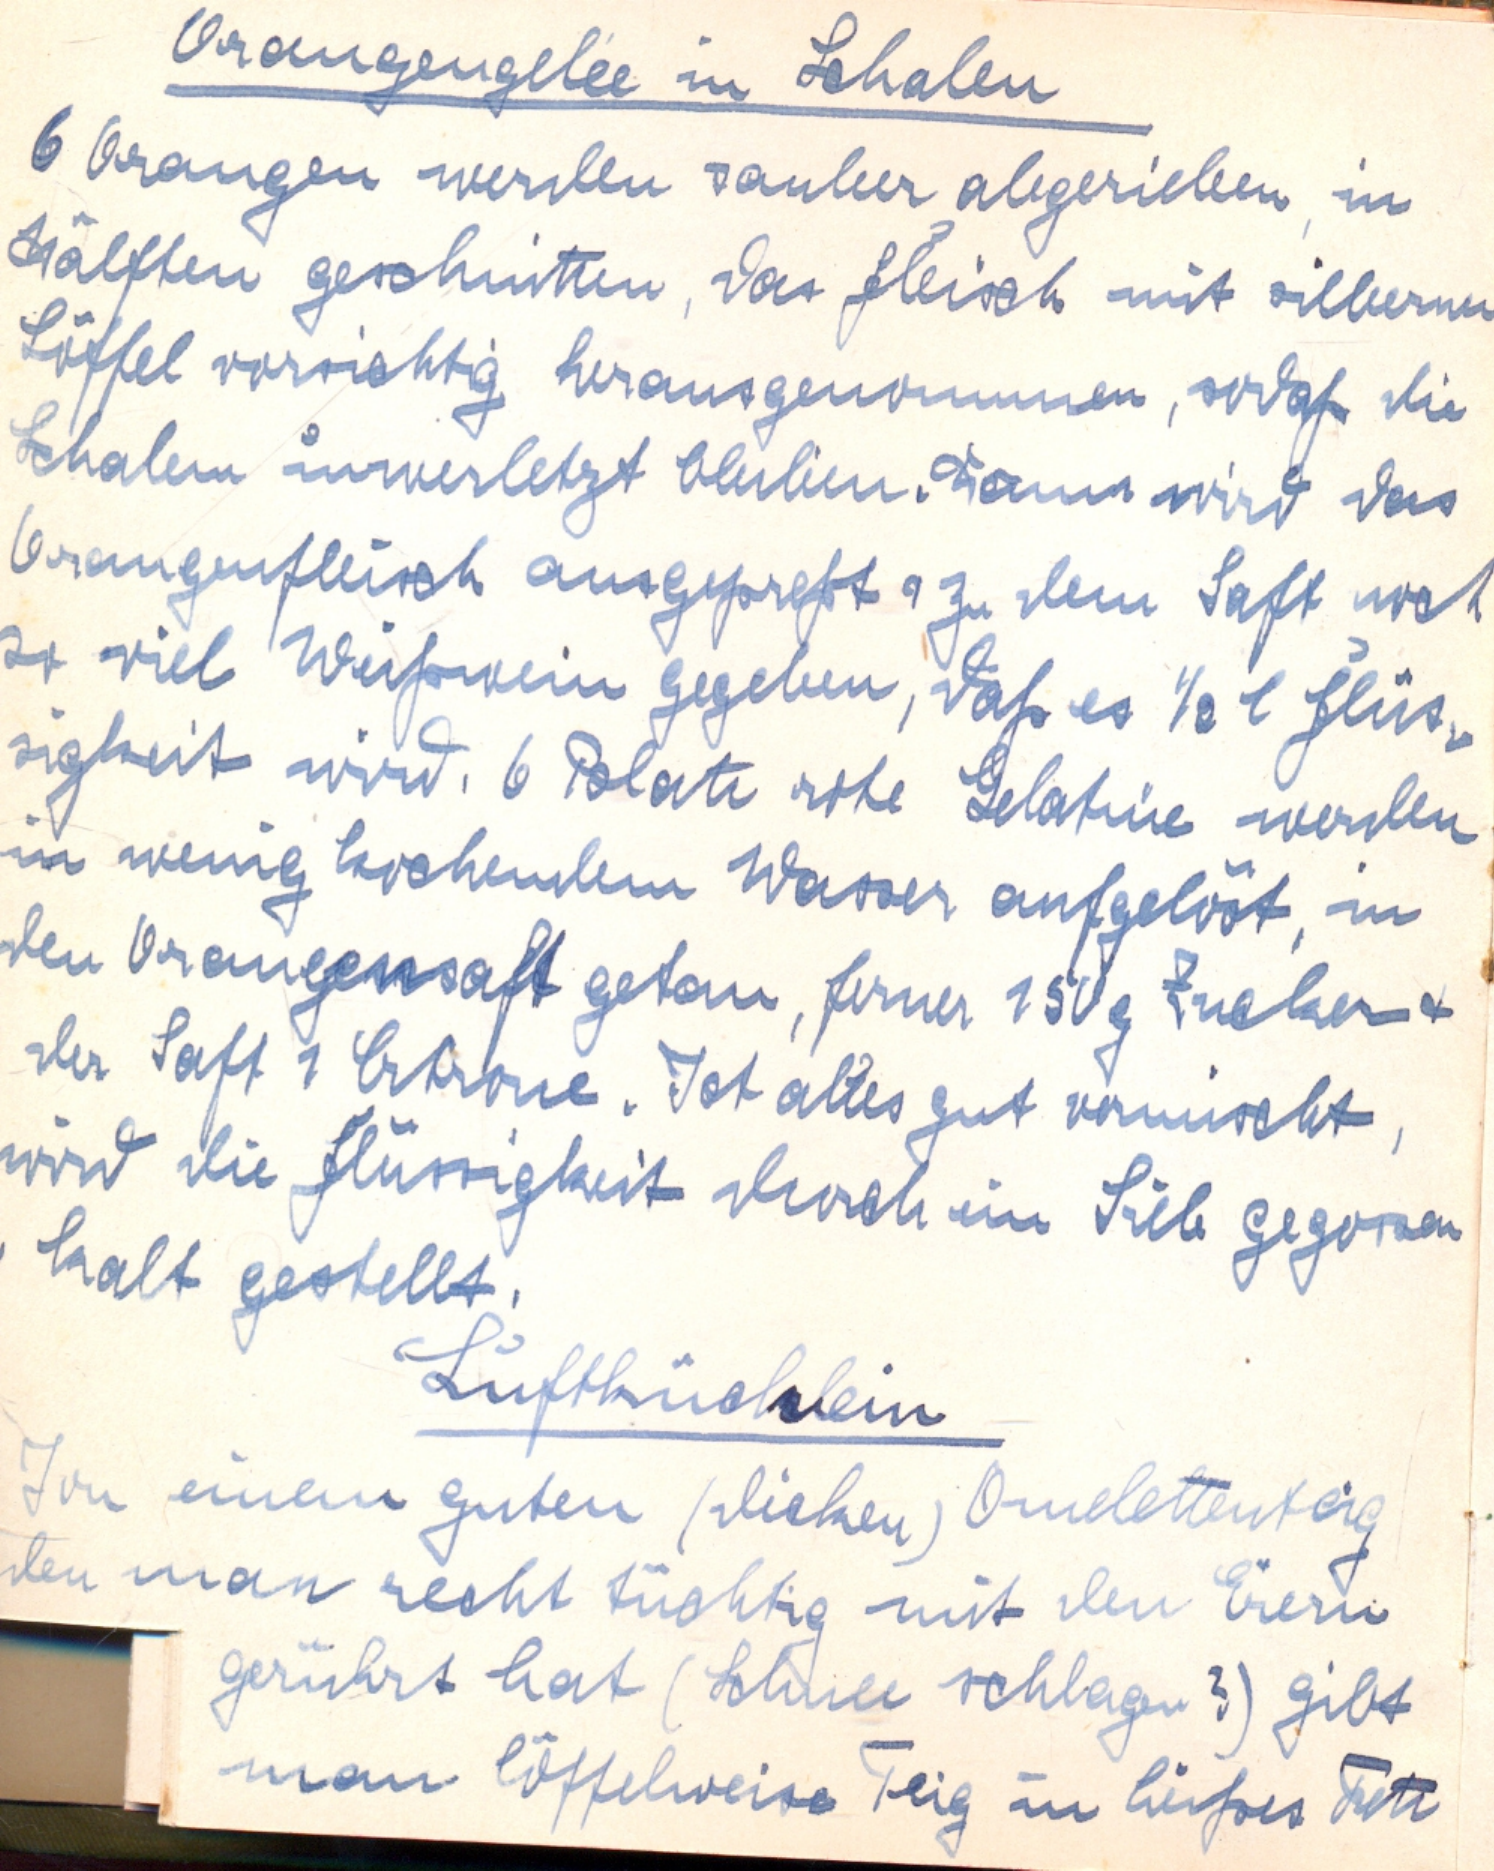 Orangengelée in Schalen
6 Orangen werden sauber abgerieben, in
Hälften geschnitten, das Fleisch mit silbernem
Löffel vorsichtig herausgenommen, sodaß die
Schalen unverletzt bleiben. Dann wird das
Orangenfleisch ausgepreßt & zu dem Saft noch
so viel Weißwein gegeben, daß es 1/2 l Flüs-
sigkeit wird. 6 Blatt rote Gelatine werden
in wenig kochendem Wasser aufgelöst, in
den Orangensaft getan, ferner 150 g Zucker &
der Saft 1 Citrone. Ist alles gut vermischt,
wird die Flüssigkeit durch ein Sieb gegossen
, kalt gestellt.
Luftküchlein
Von einem guten (dicken) Omelettenteig
den man recht tüchtig mit den Eiern
gerührt hat (Schnee schlagen?) gibt
man löffelweise Teig in heißes Fett